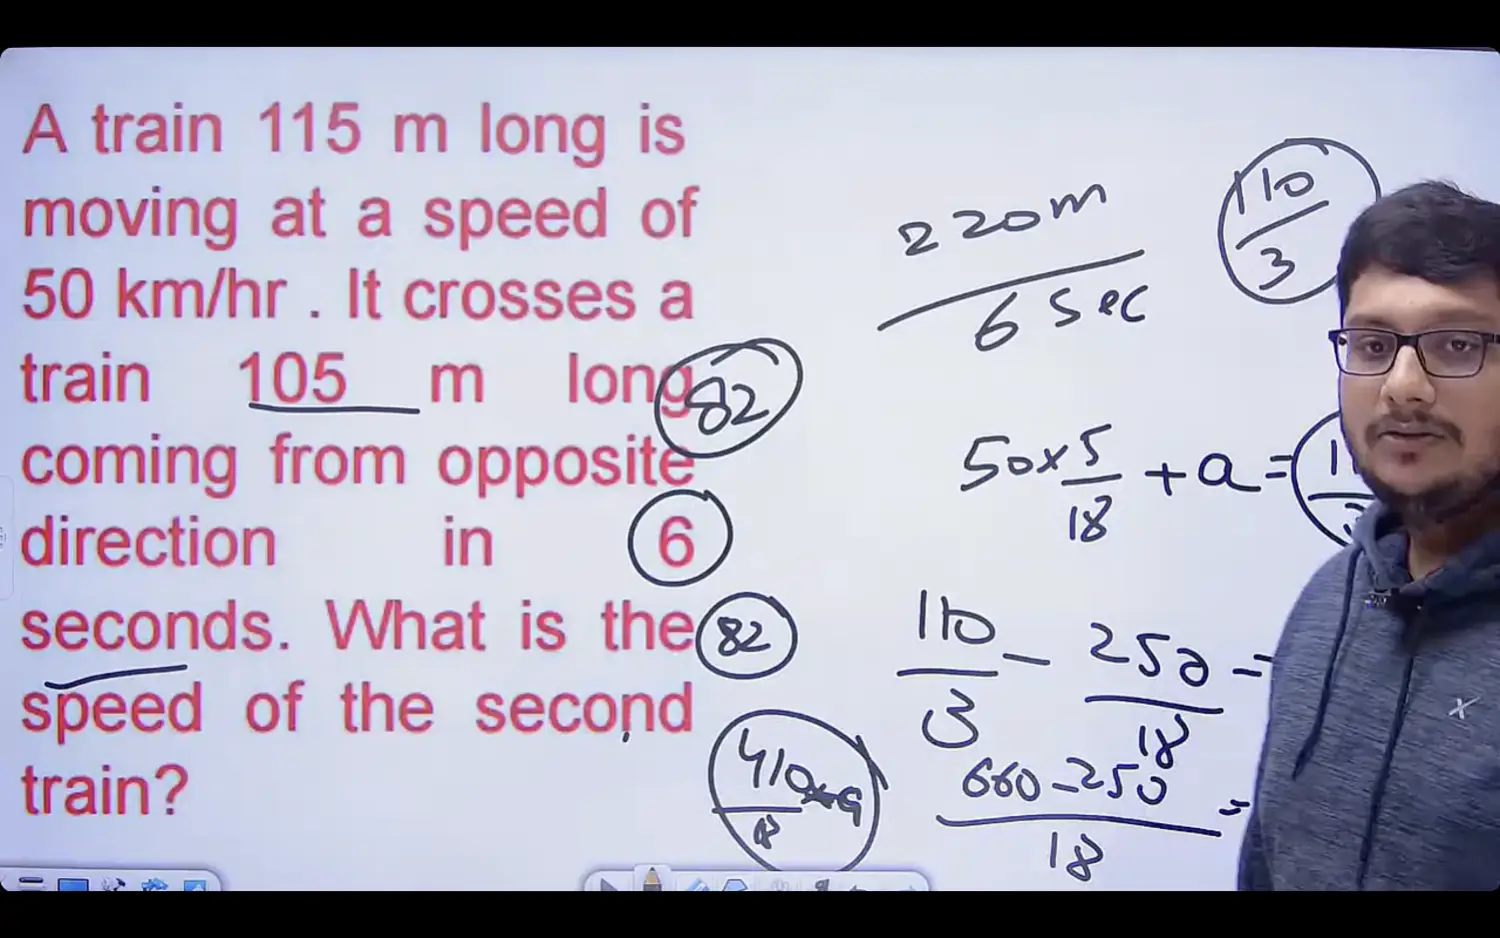 A train 115 m long is
moving at a speed of
50 km/hr . It crosses a
train 105 m long
coming from opposite
direction in 6
seconds. What is the
speed of the second
train?
82
82
410
220m
6 sec
110
3
50 x 5
18
+ a =
110
3
- 250
18
=
660 - 250
18
=
X